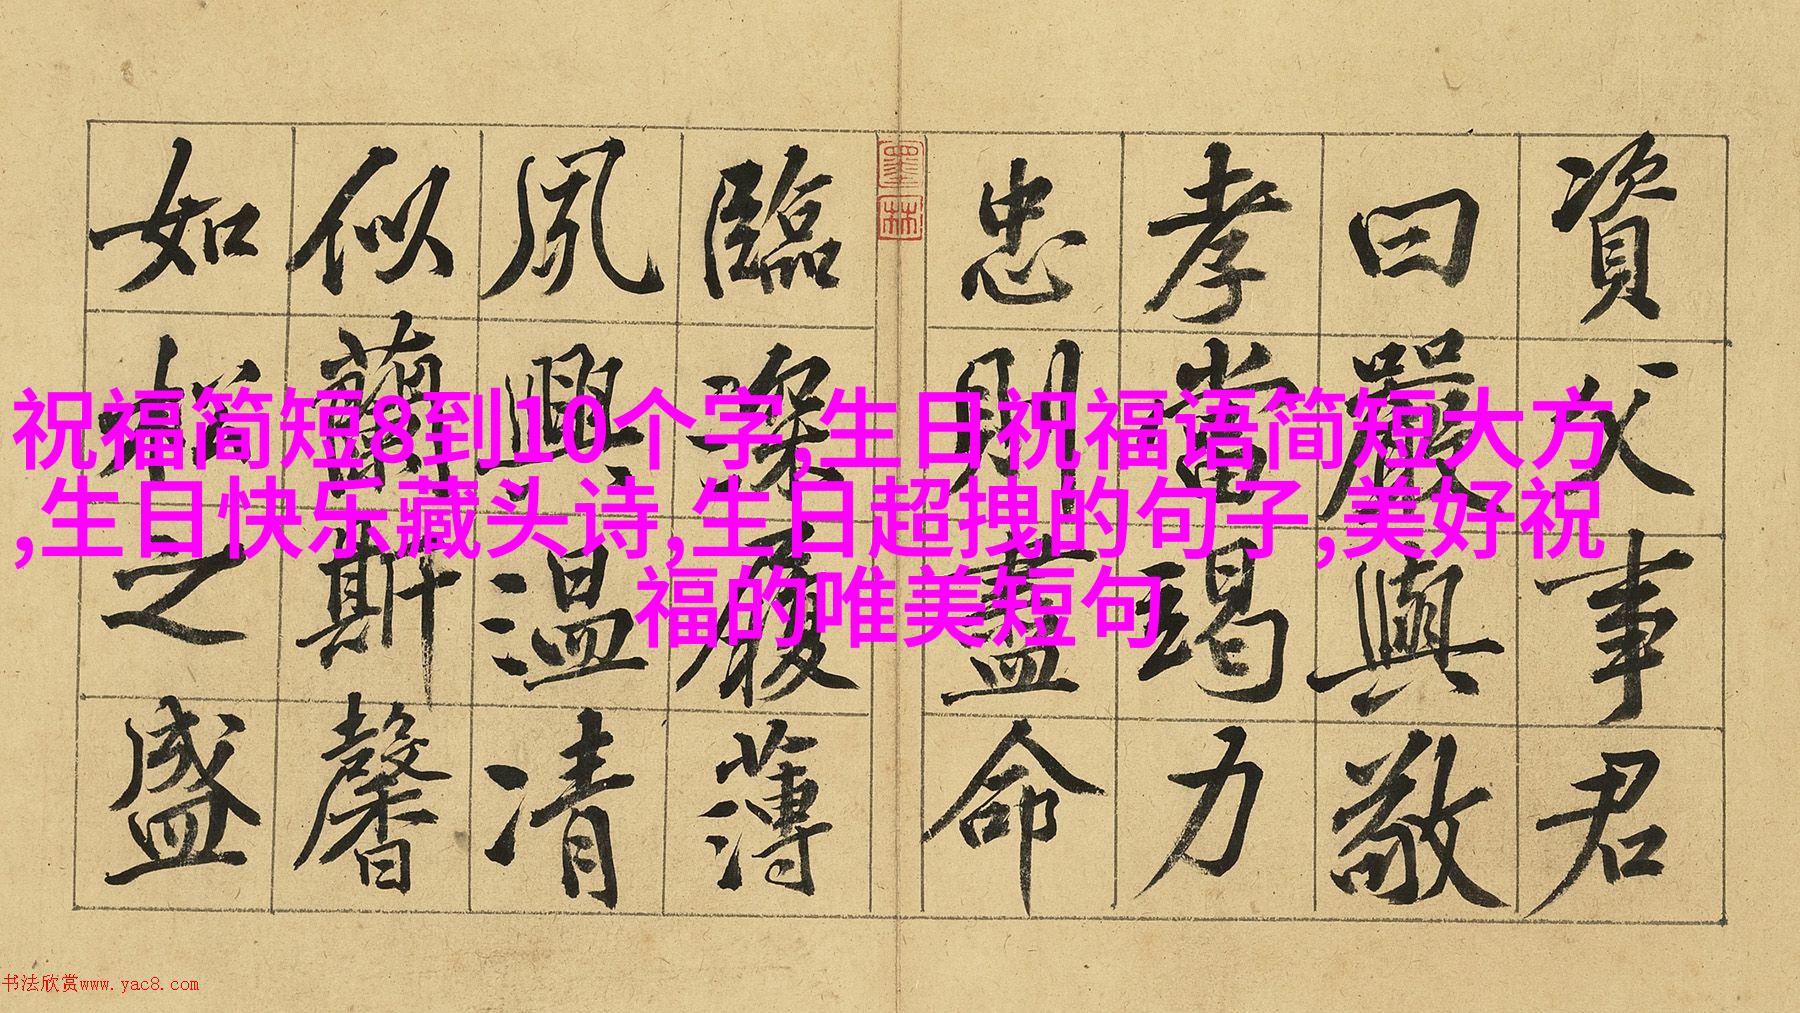 資父事君
曰嚴與敬
孝當竭力
忠則盡命
墨林
臨深履薄
夙興温凊
似蘭斯馨
如松之盛
祝福简短8到10个字,生日祝福语简短大方
,生日快乐藏头诗,生日超拽的句子,美好祝
福的唯美短句
书法欣赏www.yac8.com